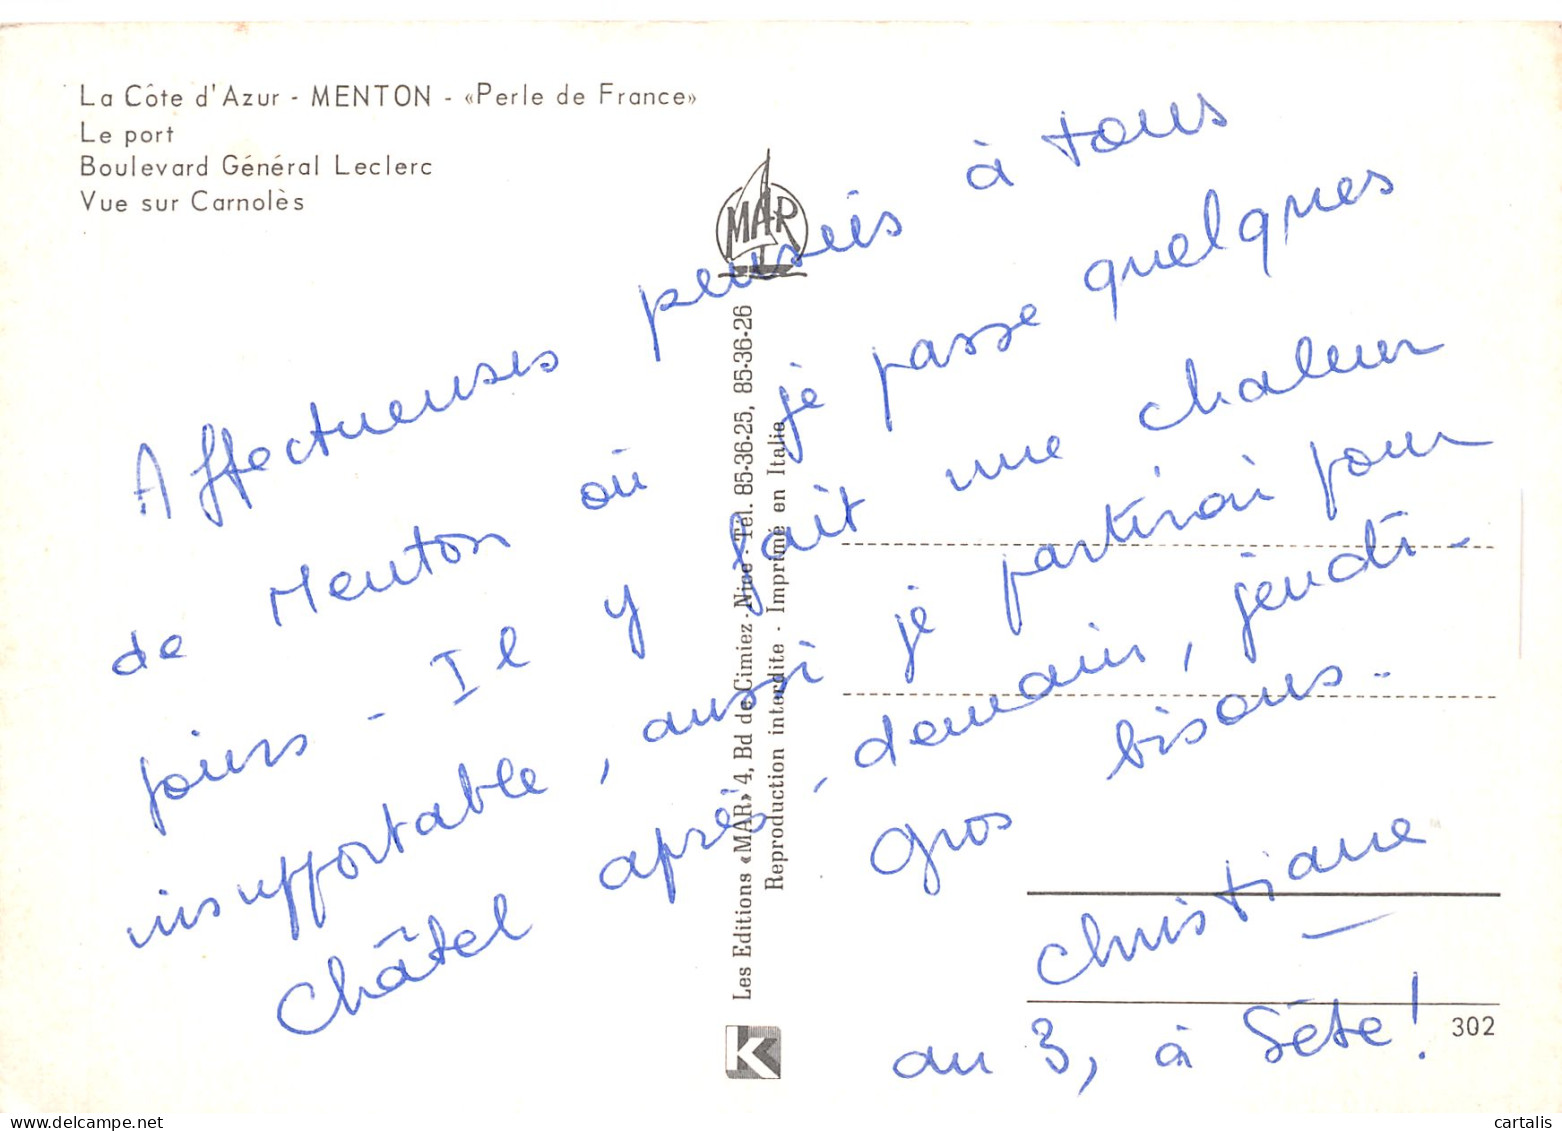 La Côte d'Azur - MENTON - «Perle de France»
Le port
Boulevard Général Leclerc
Vue sur Carnolès
MAR
Affectueuses pensées à tous
de Menton où je passe quelques
jours - Il y fait une chaleur
insupportable, aussi je partirai pour
Châtel après-demain, jeudi -
Gros bisous -
Christiane
au 3, à Sète !
Les Editions «MAR» 4, Bd de Cimiez - Nice - Tél. 85-36-25, 85-36-26
Reproduction interdite - Imprimé en Italie
K
302
cartalis